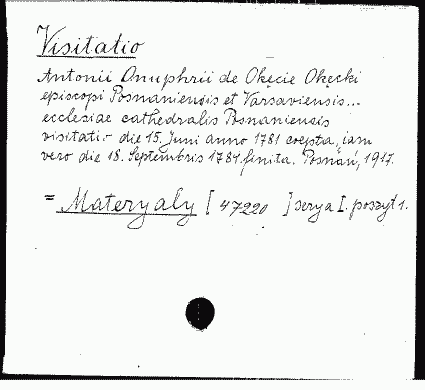 Visitatio
Antonii Onuphrii de Okęcie Okęcki
episcopi Posnaniensis et Varsaviensis...
ecclesiae cathedralis Posnaniensis
visitatio die 15. Juni anno 1781 coepta, iam
vero die 18. Septembris 1784. finita. Poznań, 1917.
= Materyaly [47220] serya I. poszyt 1.